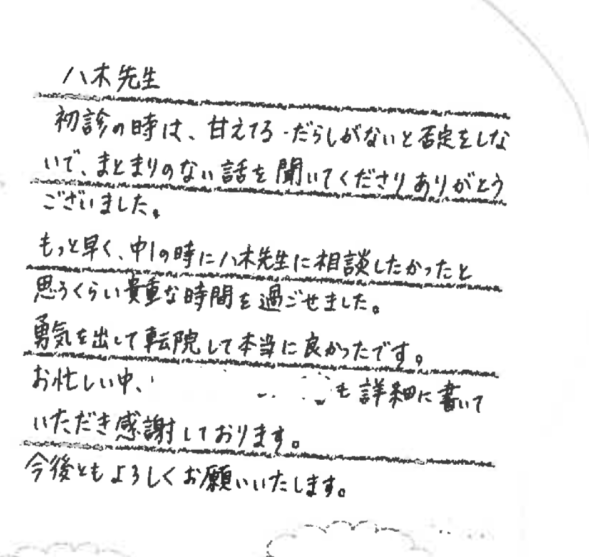 八木先生
初診の時は、甘えてる・だらしがないと否定をしな
いで、まとまりのない話を聞いてくださりありがとう
ございました。
もっと早く、中1の時に八木先生に相談したかったと
思うくらい貴重な時間を過ごせました。
勇気を出して転院して本当に良かったです。
お忙しい中、も詳細に書いて
いただき感謝しております。
今後ともよろしくお願いいたします。